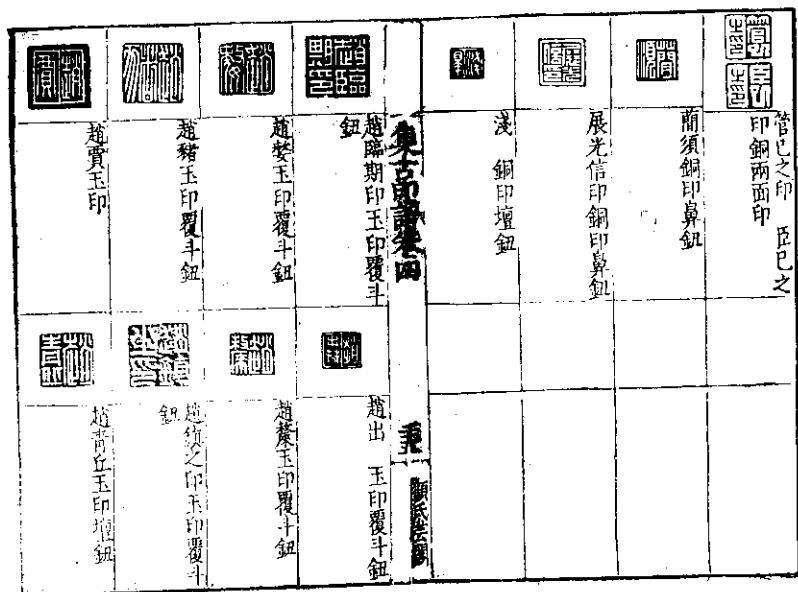 管巳之印 臣巳之
印銅兩面印
藺須銅印鼻鈕
展光信印銅印鼻鈕
淺 銅印壇鈕
集古印譜卷四
顧氏芸閣
趙臨期印玉印覆斗
鈕
趙婪玉印覆斗鈕
趙豬玉印覆斗鈕
趙賈玉印
趙出 玉印覆斗鈕
趙犛玉印覆斗鈕
趙鎮之印玉印覆斗
鈕
趙青丘玉印壇鈕